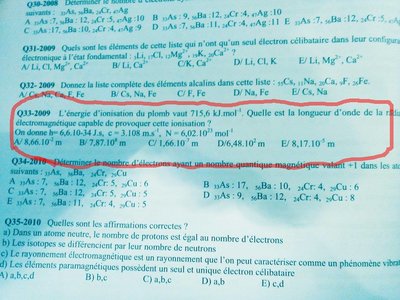 Q30-2008 Déterminer le nombre d'électrons
suivants : ₃₃As, ₅₆Ba, ₂₄Cr, ₄₇Ag
A ₃₃As :7, ₅₆Ba : 12, ₂₄Cr :5, ₄₇Ag :10 B ₃₃As : 9, ₅₆Ba :12, ₂₄Cr :4, ₄₇Ag :10
C ₃₃As :17, ₅₆Ba :10, ₂₄Cr :4, ₄₇Ag :10 D ₃₃As :7, ₅₆Ba : 11, ₂₄Cr :4, ₄₇Ag :11 E ₃₃As :7, ₅₆Ba :12, ₂₄Cr :5,
Q31-2009 Quels sont les éléments de cette liste qui n'ont qu'un seul électron célibataire dans leur configura
électronique à l'état fondamental : ₃Li, ₁₇Cl, ₁₂Mg²⁺, ₁₉K, ₂₀Ca²⁺ ?
A/ Li, Cl, Mg²⁺, Ca²⁺ B/ Li, Ca²⁺ C/K, Ca²⁺ D/ Li, Cl, K E/ Li, Mg²⁺, Ca²⁺
Q32- 2009 Donnez la liste complète des éléments alcalins dans cette liste : ₅₅Cs, ₁₁Na, ₂₀Ca, ₉F, ₂₆Fe.
A/ Cs, Na, Ca, F, Fe B/ Cs, Na, Fe C/ F, Fe D/ Na, Fe E/ Cs, Na
Q33-2009 L'énergie d'ionisation du plomb vaut 715,6 kJ.mol⁻¹. Quelle est la longueur d'onde de la radia
électromagnétique capable de provoquer cette ionisation ?
On donne h= 6,6.10-34 J.s, c = 3.108 m.s⁻¹, N = 6,02.10²³ mol⁻¹
A/ 8,66.10⁻² m B/ 7,87.10⁸ m C/ 1,66.10⁻⁷ m D/6,48.10² m E/ 8,17.10⁻⁵ m
Q34-2010 Déterminer le nombre d'électrons ayant un nombre quantique magnétique valant +1 dans les ato
suivants : ₃₃As, ₅₆Ba, ₂₄Cr, ₂₉Cu
A ₃₃As : 7, ₅₆Ba : 12, ₂₄Cr: 5, ₂₉Cu : 6 B ₃₃As : 17, ₅₆Ba : 10, ₂₄Cr: 4, ₂₉Cu : 6
C ₃₃As : 7, ₅₆Ba : 12, ₂₄Cr: 5, ₂₉Cu : 5 D ₃₃As : 9, ₅₆Ba : 12, ₂₄Cr: 4, ₂₉Cu : 8
E ₃₃As : 7, ₅₆Ba : 11, ₂₄Cr: 4, ₂₉Cu : 5
Q35-2010 Quelles sont les affirmations correctes ?
a) Dans un atome neutre, le nombre de protons est égal au nombre d'électrons
b) Les isotopes se différencient par leur nombre de neutrons
c) Le rayonnement électromagnétique est un rayonnement que l'on peut caractériser comme un phénomène vibrat
d) Les éléments paramagnétiques possèdent un seul et unique électron célibataire
A) a,b,c,d B) b,c C) a,b,c D) a,b E) c,d